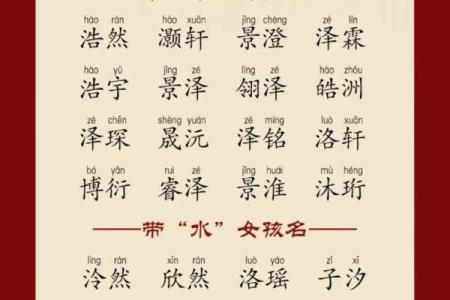 hào rán hào xuān jǐng chéng zé lín
浩然 灏轩 景澄 泽霖
hào yǔ jǐng zé líng zé hào zhōu
浩宇 景泽 翎泽 皓洲
zé chēn shèng yuán zé míng luò xuān
泽琛 晟沅 泽铭 洛轩
bó yǎn ruì zé jǐng huái mù héng
博衍 睿泽 景淮 沐珩
带“水”女孩名
líng rán xīn rán luò yáo zǐ xī
泠然 欣然 洛瑶 子汐